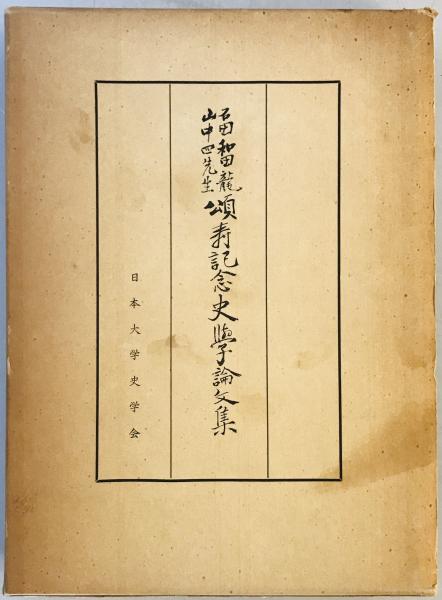 石田和田龍
山中四先生
頌寿記念史學論文集
日本大学史学会